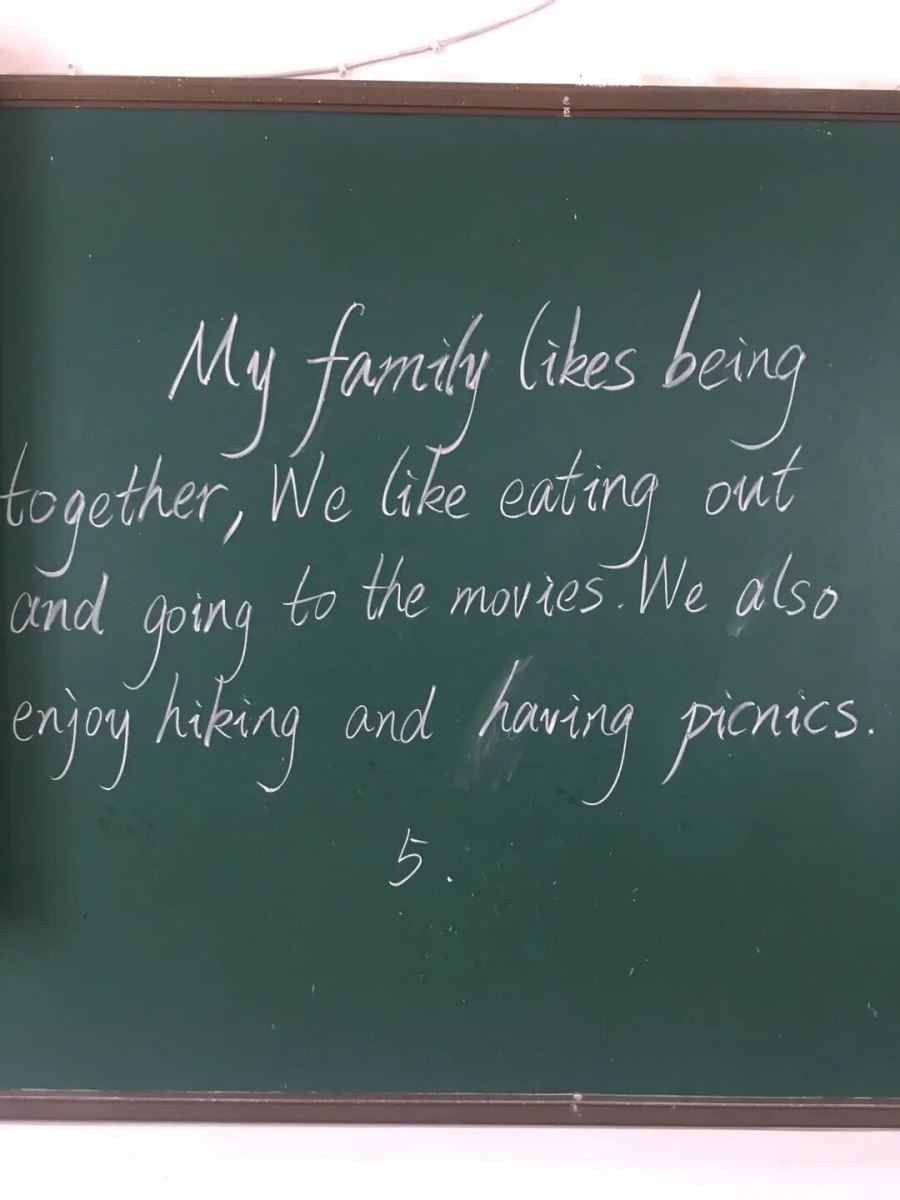 My family likes being
together, We like eating out
and going to the movies. We also
enjoy hiking and having picnics.
5.